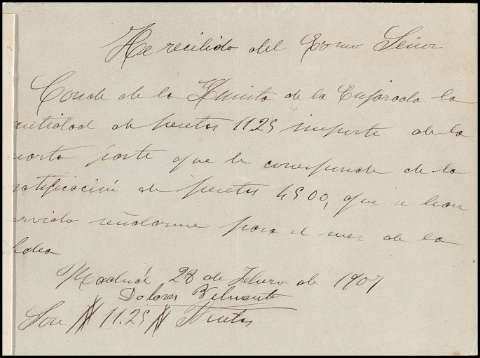 He recibido del Exmo Señor
Conde de la Quinta de la Enjarada la
cantidad de pesetas 11.25 importe de la
cuarta parte que le corresponde de la
gratificación de pesetas 45.00, que a bien
servido señalarme para el mes de la
fecha
Madrid 28 de Febrero de 1907
Dolores Belmonte
Son # 11.25 # Ptas